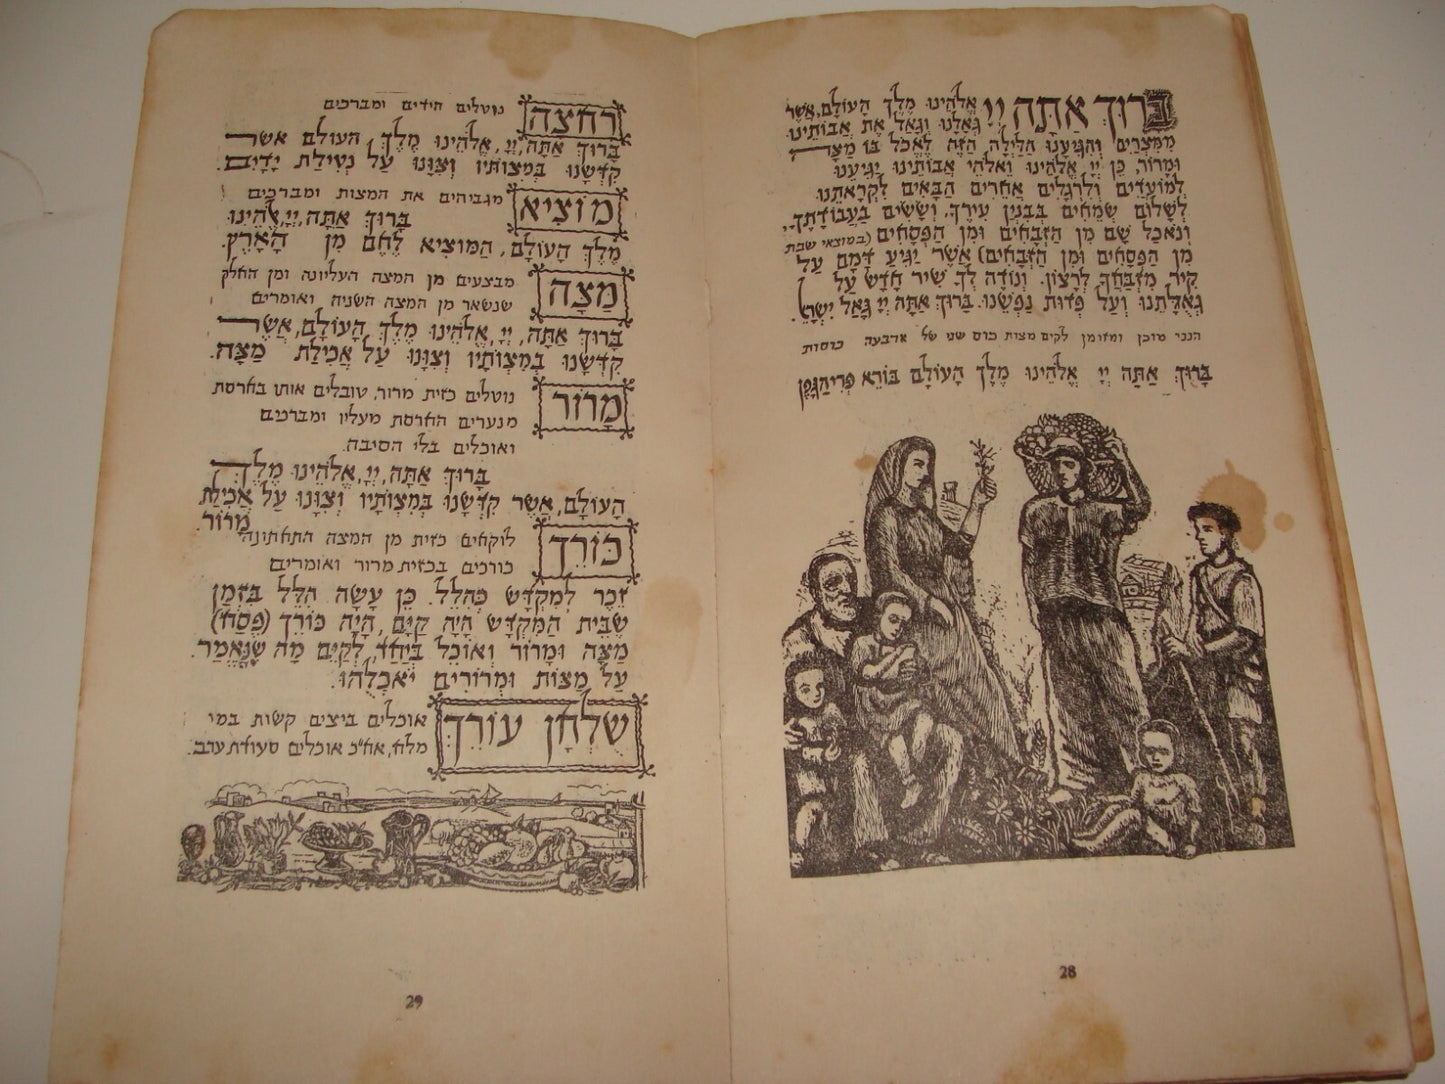 בָּרוּךְ אַתָּה יְיָ אֱלֹהֵינוּ מֶלֶךְ הָעוֹלָם, אֲשֶׁר
גְּאָלָנוּ וְגָאַל אֶת אֲבוֹתֵינוּ
מִמִּצְרַיִם וְהִגִּיעָנוּ הַלַּיְלָה הַזֶּה לֶאֱכָל בּוֹ מַצָּה
וּמָרוֹר, כֵּן יְיָ אֱלֹהֵינוּ וֵאלֹהֵי אֲבוֹתֵינוּ יַגִּיעֵנוּ
לְמוֹעֲדִים וְלִרְגָלִים אֲחֵרִים הַבָּאִים לִקְרָאתֵנוּ
לְשָׁלוֹם שְׂמֵחִים בְּבִנְיַן עִירֶךָ, וְשָׂשִׂים בַּעֲבוֹדָתֶךָ,
וְנֹאכַל שָׁם מִן הַזְּבָחִים וּמִן הַפְּסָחִים (במוצאי שבת
מִן הַפְּסָחִים וּמִן הַזְּבָחִים) אֲשֶׁר יַגִּיעַ דָּמָם עַל
קִיר מִזְבַּחֲךָ לְרָצוֹן. וְנוֹדֶה לְךָ שִׁיר חָדָשׁ עַל
גְּאֻלָּתֵנוּ וְעַל פְּדוּת נַפְשֵׁנוּ. בָּרוּךְ אַתָּה יְיָ גָּאַל יִשְׂרָאֵל.
הנני מוכן ומזומן לקים מצות כוס שני של ארבעה כוסות
בָּרוּךְ אַתָּה יְיָ אֱלֹהֵינוּ מֶלֶךְ הָעוֹלָם בּוֹרֵא פְּרִי הַגָּפֶן
28
רחצה נוטלים הידים ומברכים
בָּרוּךְ אַתָּה, יְיָ, אֱלֹהֵינוּ מֶלֶךְ, הָעוֹלָם אֲשֶׁר
קִדְּשָׁנוּ בְּמִצְוֹתָיו וְצִוָּנוּ עַל נְטִילַת יָדָיִם.
מוֹצִיא מגביהים את המצות ומברכים
בָּרוּךְ אַתָּה, יְיָ, אֱלֹהֵינוּ
מֶלֶךְ הָעוֹלָם, הַמּוֹצִיא לֶחֶם מִן הָאָרֶץ.
מַצָּה מבצעים מן המצה העליונה ומן החלק
שנשאר מן המצה השניה ואומרים
בָּרוּךְ אַתָּה, יְיָ, אֱלֹהֵינוּ מֶלֶךְ, הָעוֹלָם, אֲשֶׁר
קִדְּשָׁנוּ בְּמִצְוֹתָיו וְצִוָּנוּ עַל אֲכִילַת מַצָּה.
מָרוֹר נוטלים כזית מרור, טובלים אותו בחרסת
מנערים החרסת מעליו ומברכים
ואוכלים בלי הסיבה.
בָּרוּךְ אַתָּה, יְיָ, אֱלֹהֵינוּ מֶלֶךְ
הָעוֹלָם, אֲשֶׁר קִדְּשָׁנוּ בְּמִצְוֹתָיו וְצִוָּנוּ עַל אֲכִילַת
מָרוֹר.
כּוֹרֵךְ לוקחים כזית מן המצה התחתונה
כורכים בכזית מרור ואומרים
זֵכֶר לְמִקְדָּשׁ כְּהִלֵּל. כֵּן עָשָׂה הִלֵּל בִּזְמַן
שֶׁבֵּית הַמִּקְדָּשׁ הָיָה קַיָּם, הָיָה כּוֹרֵךְ (פֶּסַח)
מַצָּה וּמָרוֹר וְאוֹכֵל בְּיַחַד, לְקַיֵּם מַה שֶּׁנֶּאֱמַר.
עַל מַצּוֹת וּמְרוֹרִים יֹאכְלֻהוּ.
שֻׁלְחָן עוֹרֵךְ אוכלים ביצים קשות במי
מלח, אח"כ אוכלים סעודת ערב.
29